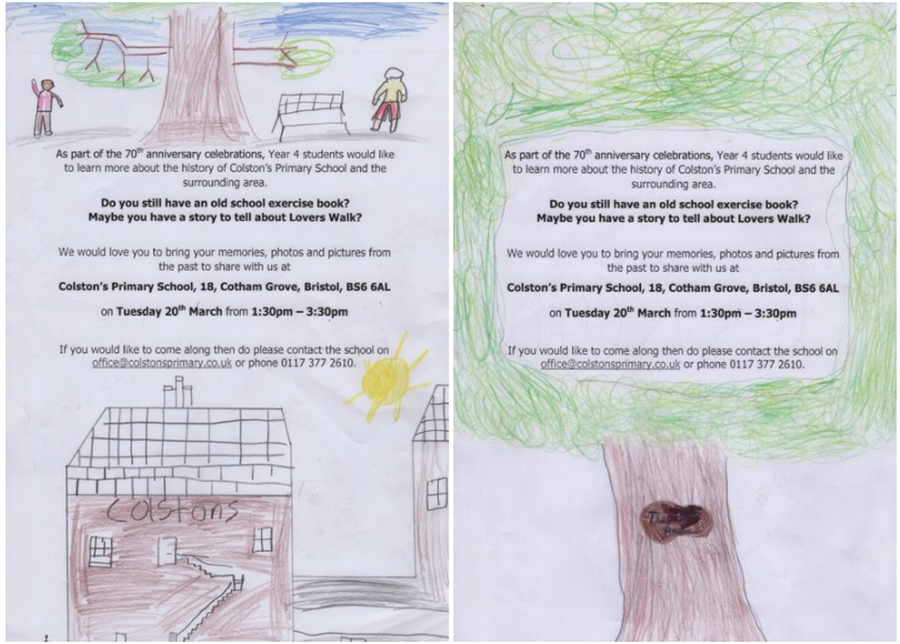 As part of the 70th anniversary celebrations, Year 4 students would like
to learn more about the history of Colston's Primary School and the
surrounding area.
Do you still have an old school exercise book?
Maybe you have a story to tell about Lovers Walk?
We would love you to bring your memories, photos and pictures from
the past to share with us at
Colston's Primary School, 18, Cotham Grove, Bristol, BS6 6AL
on Tuesday 20th March from 1:30pm – 3:30pm
If you would like to come along then do please contact the school on
office@colstonsprimary.co.uk or phone 0117 377 2610.
Colstons
As part of the 70th anniversary celebrations, Year 4 students would like
to learn more about the history of Colston's Primary School and the
surrounding area.
Do you still have an old school exercise book?
Maybe you have a story to tell about Lovers Walk?
We would love you to bring your memories, photos and pictures from
the past to share with us at
Colston's Primary School, 18, Cotham Grove, Bristol, BS6 6AL
on Tuesday 20th March from 1:30pm – 3:30pm
If you would like to come along then do please contact the school on
office@colstonsprimary.co.uk or phone 0117 377 2610.